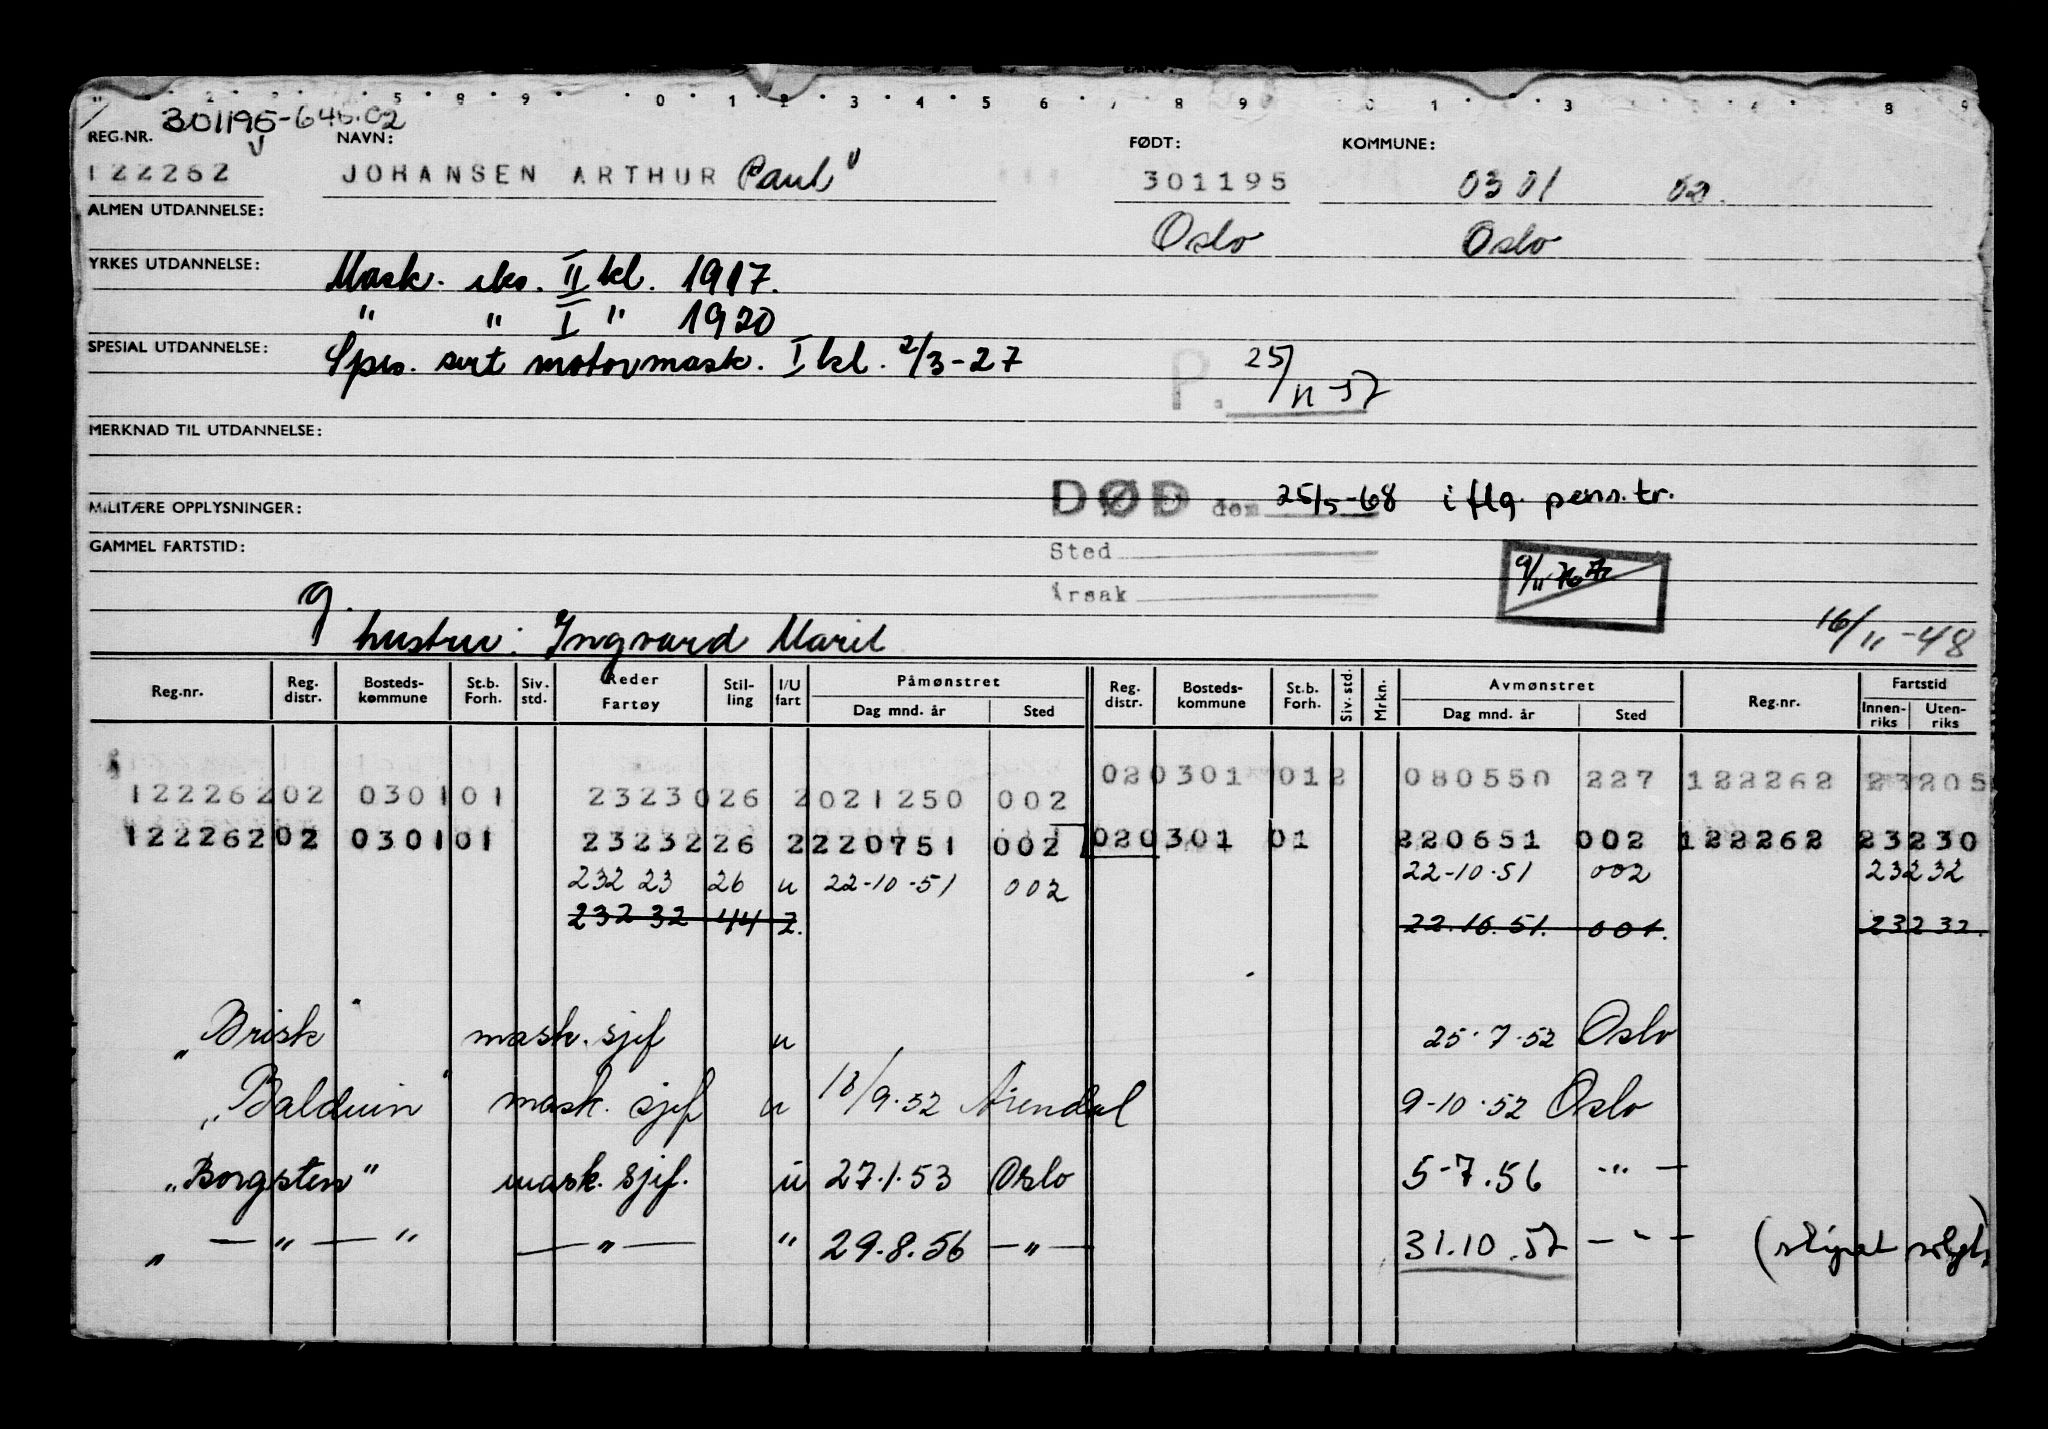 301195-646.02
REG.NR. NAVN: FØDT: KOMMUNE:
122262 JOHANSEN ARTHUR Paul 301195 0301 02.
ALMEN UTDANNELSE: Oslo Oslo
YRKES UTDANNELSE: Mask. eks. II kl. 1917.
" " I " 1920
SPESIAL UTDANNELSE: Spes. sert motormask. I kl. 2/3-27
P. 25/11-57
MERKNAD TIL UTDANNELSE:
MILITÆRE OPPLYSNINGER: DØD den 25/5-68 iflg. pens.tr.
GAMMEL FARTSTID: Sted
9/11-76
Årsak
g.
hustru: Ingvard Marit 16/11-48
Reg.nr. Reg. distr. Bosteds-kommune St.b. Forh. Siv. std. Reder Fartøy Stil-ling I/U fart Påmønstret Dag mnd. år Sted Reg. distr. Bosteds-kommune St.b. Forh. Siv. std. Mrkn. Avmønstret Dag mnd. år Sted Reg.nr. Fartstid Innen-riks Uten-riks
020301 012 080550 227 122262 23205
12226202 030101 2323026 2021250 002
12226202 030101 2323226 2220751 002 020301 01 220651 002 122262 23230
232 23 26 u 22-10-51 002 22-10-51 002 23232
232 32 44 2. 22.10.51. 001. 23232.
"Brisk" mask. sjef u 25.7.52 Oslo
"Balduin" mask. sjef u 18/9.52 Arendal 9-10.52 Oslo
"Borgsten" mask. sjef. u 27.1.53 Oslo 5-7.56 -"-
" — " — " — " — " 29.8.56 —"— 31.10.57 — " — (skipet solgt)